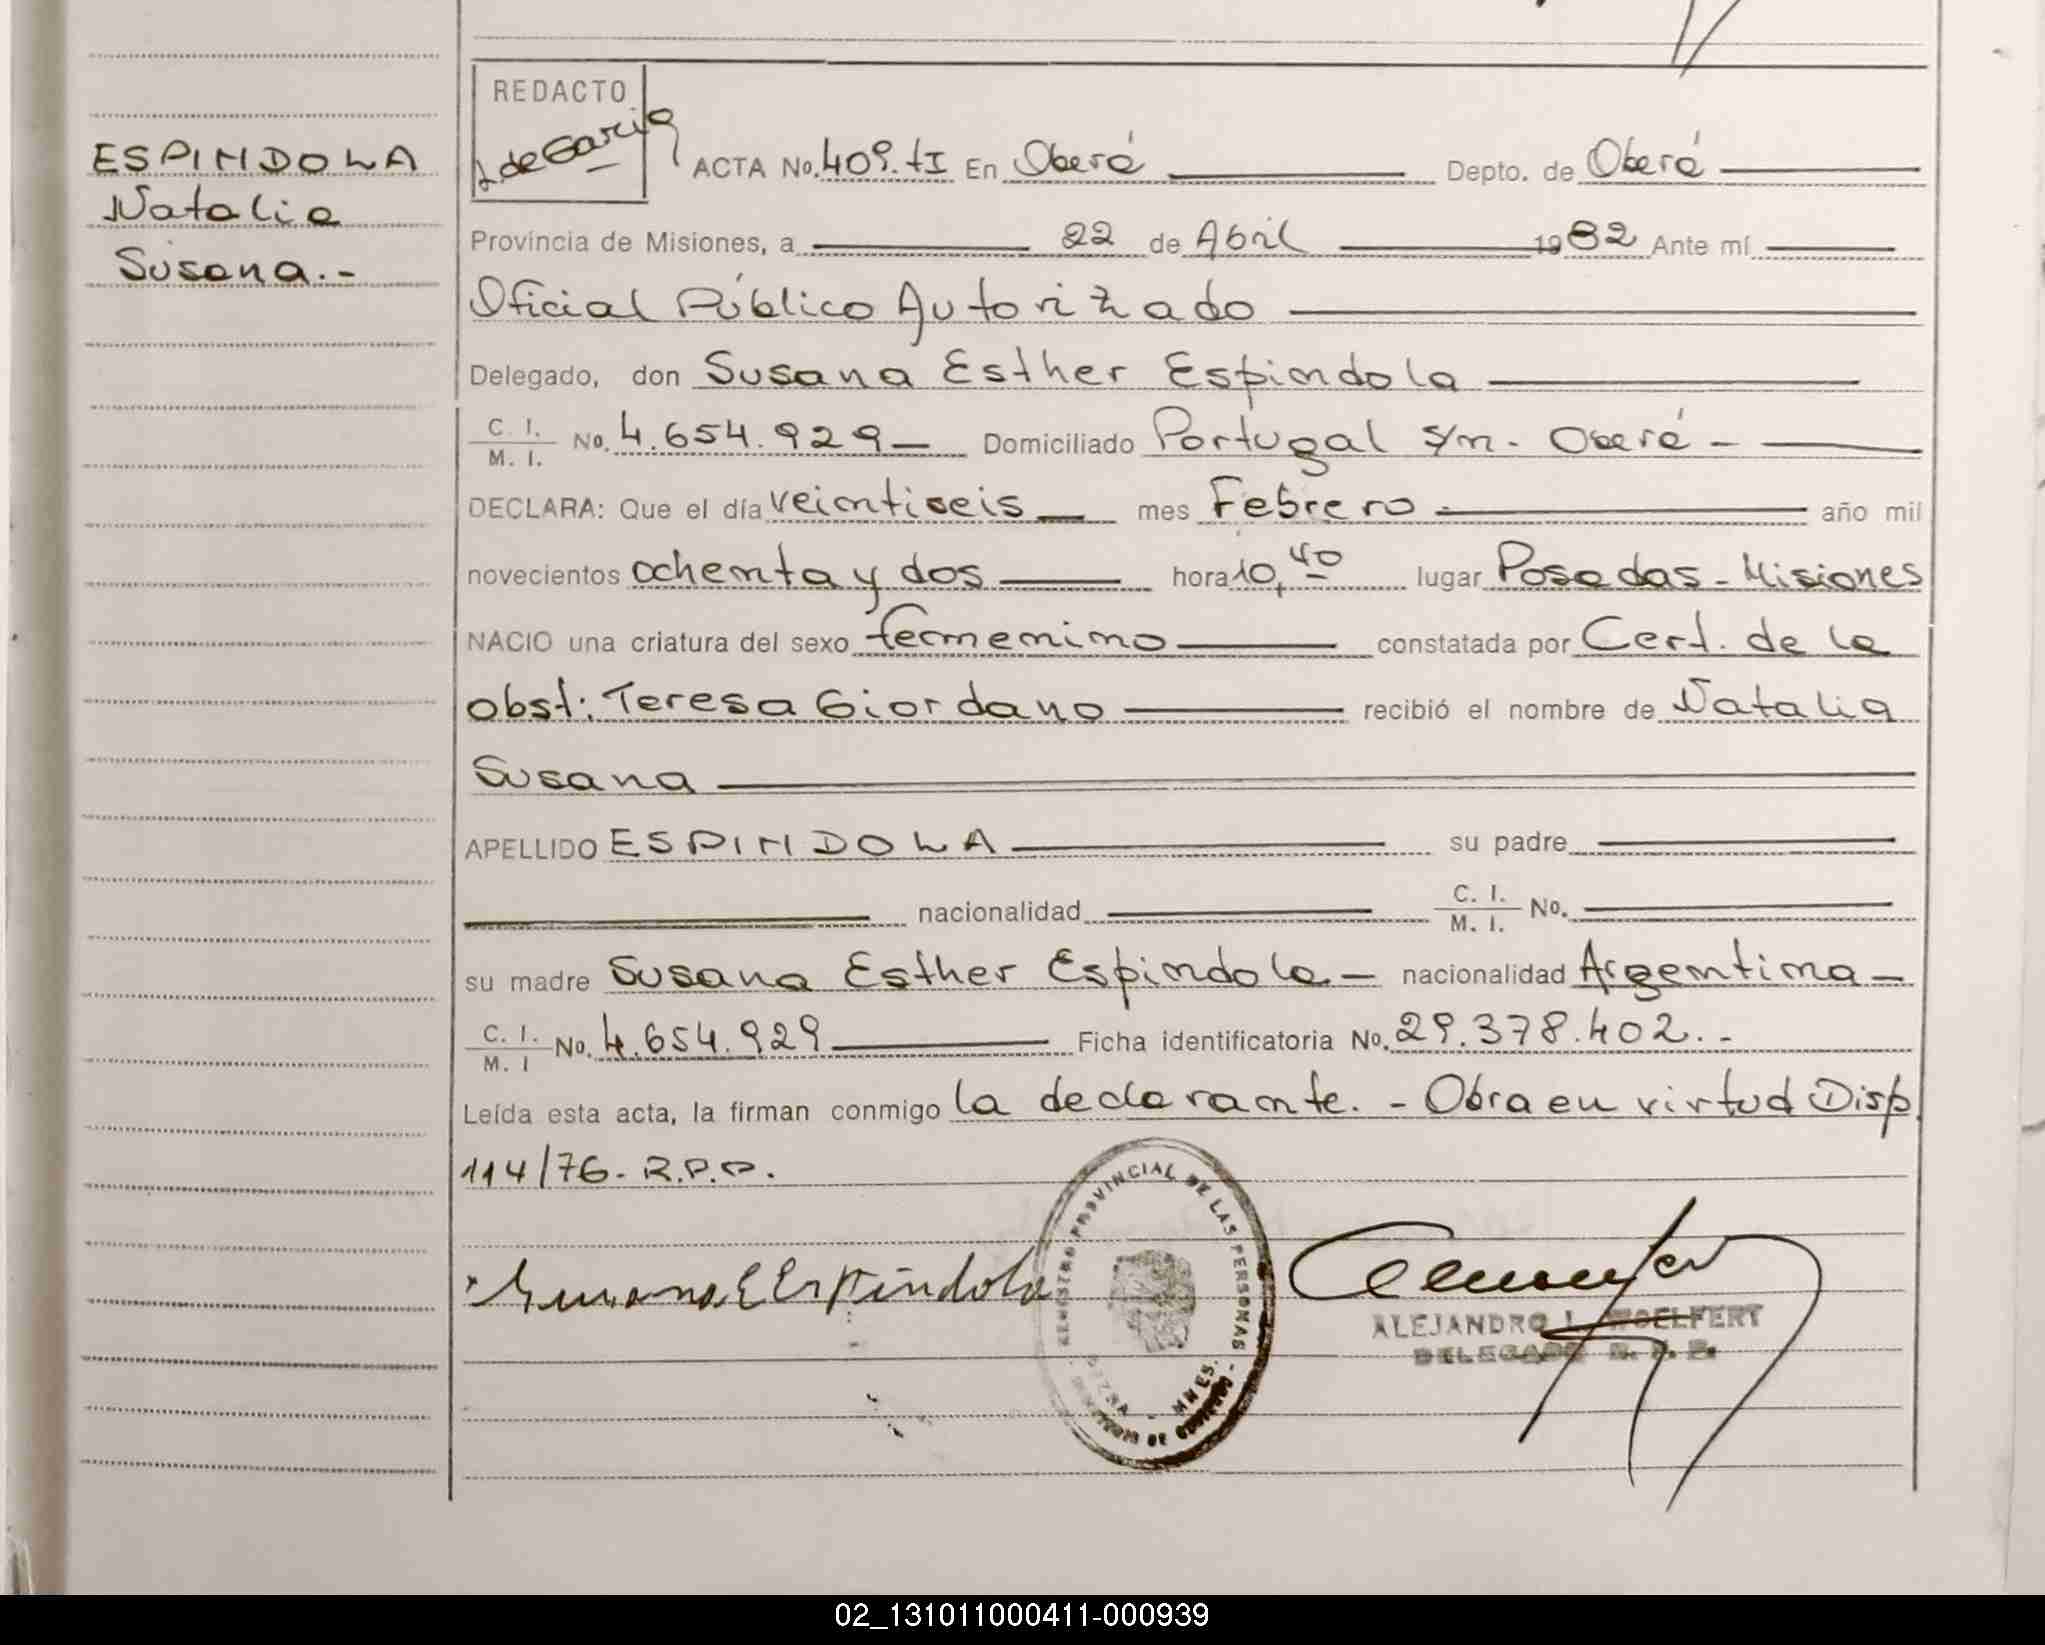 REDACTO
L de Garia
ESPINDOLA
Natalia
Susana.-
ACTA No. 409. tI En Oberá Depto. de Oberá
Provincia de Misiones, a 22 de Abril 1982 Ante mí
Oficial Público Autorizado
Delegado, don Susana Esther Espindola
C. I. M. I. No. 4.654.929 Domiciliado Portugal s/n. Oberá -
DECLARA: Que el día veintiseis mes Febrero año mil
novecientos ochenta y dos hora 10,40 lugar Posadas - Misiones
NACIO una criatura del sexo femenino constatada por Cert. de la
obst: Teresa Giordano recibió el nombre de Natalia
Susana
APELLIDO ESPINDOLA su padre
nacionalidad C. I. M. I. No.
su madre Susana Esther Espindola - nacionalidad Argentina -
C. I. M. I No. 4.654.929 Ficha identificatoria No. 29.378.402. -
Leída esta acta, la firman conmigo la declarante. - Obra en virtud Disp.
114/76. R.P.P.
Susana E Espíndola
REGISTRO PROVINCIAL DE LAS PERSONAS
MNES.
ALEJANDRO L. WOELFERT
DELEGADO R. P. P.
02_131011000411-000939